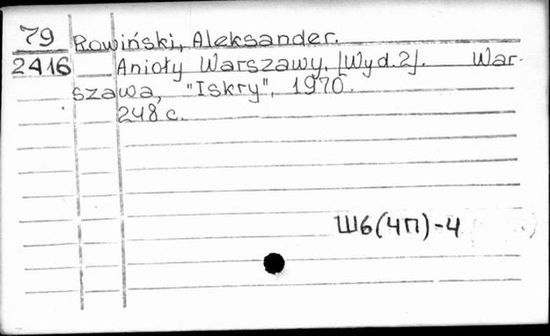 79 Rowiński, Aleksander.
2416 Anioły Warszawy. [Wyd. 2]. War-
szawa, "Iskry", 1970.
248 с.
Ш6(4П)-4